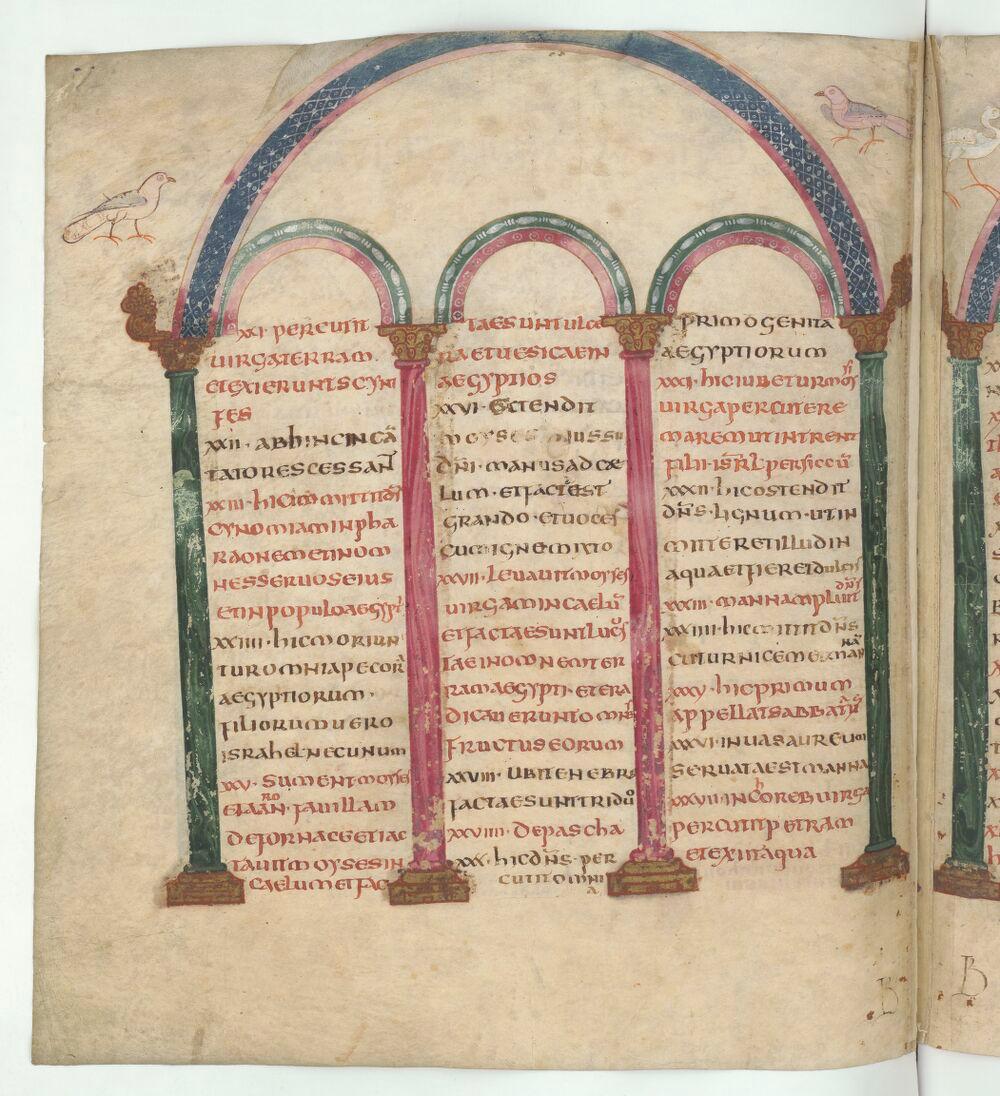 XXI · PERCUTIT
UIRGATERRAM
ETEXIERUNTSCYNI
FES
XXII · ABHINCINCĀ
TATORESCESSAN̄
XXIII · HIC
CYNOMIAMINPHA
RAONEMETINOM
NESSERUOSEIUS
ETINPOPULOAEGYPTI
XXIIII · HICMORIUN
TUROMNIAPECORA
AEGYPTIORUM ·
FILIORUMUERO
ISRAHELNECUNUM
XXV · SUMENTMOYSES
ETAARON · FAUILLAM
DEFORNACEETIAC
TAUITMOYSESIN
CAELUMETFAC
TAESUNTULCE
RAETUESICAEIN
AEGYPTIOS
XXVI · EXTENDIT
MOYSES IUSSU
DN̄I · MANUSADCAE
LUM · ETFACTĒEST
GRANDO · ETUOCES
CUMIGNEMIXTO
XXVII · LEUAUITMOYSES
UIRGAMINCAELŪ
ETFACTAESUNTLUCUS
TAEINOMNEMTER
RAMAEGYPTI · ETERA
DICAUERUNTOMNES
FRUCTUSEORUM
XXVIII · UBITENEBRE
FACTAESUNTTRIDUO
XXVIIII · DEPASCHA
XXX · HICDN̄S · PER
CUTITOMNIA
PRIMOGENITA
AEGYPTIORUM
XXXI · HICIUBETURMOYSI
UIRGAPERCUTERE
MAREMUTINTRENT
FILII · ISR̄L · PERSICCŪ
XXXII · HICOSTENDIT
DN̄S · LIGNUM · UTIN
MITTERETILLUDIN
AQUAETFIERETDULCIS
XXXIII · MANNAMPLUIT DN̄S
XXXIIII · HICMITITDN̄S
CUTURNICEMETMANNĀ
XXXV · HICPRIMUM
APPELLATSABBATŪ
XXXVI · INUASAUREUM
SERUATAESTMANNA
XXXVII · INCHOREBUIRGA
PERCUTITPETRAM
ETEXIITAQUA
B
B